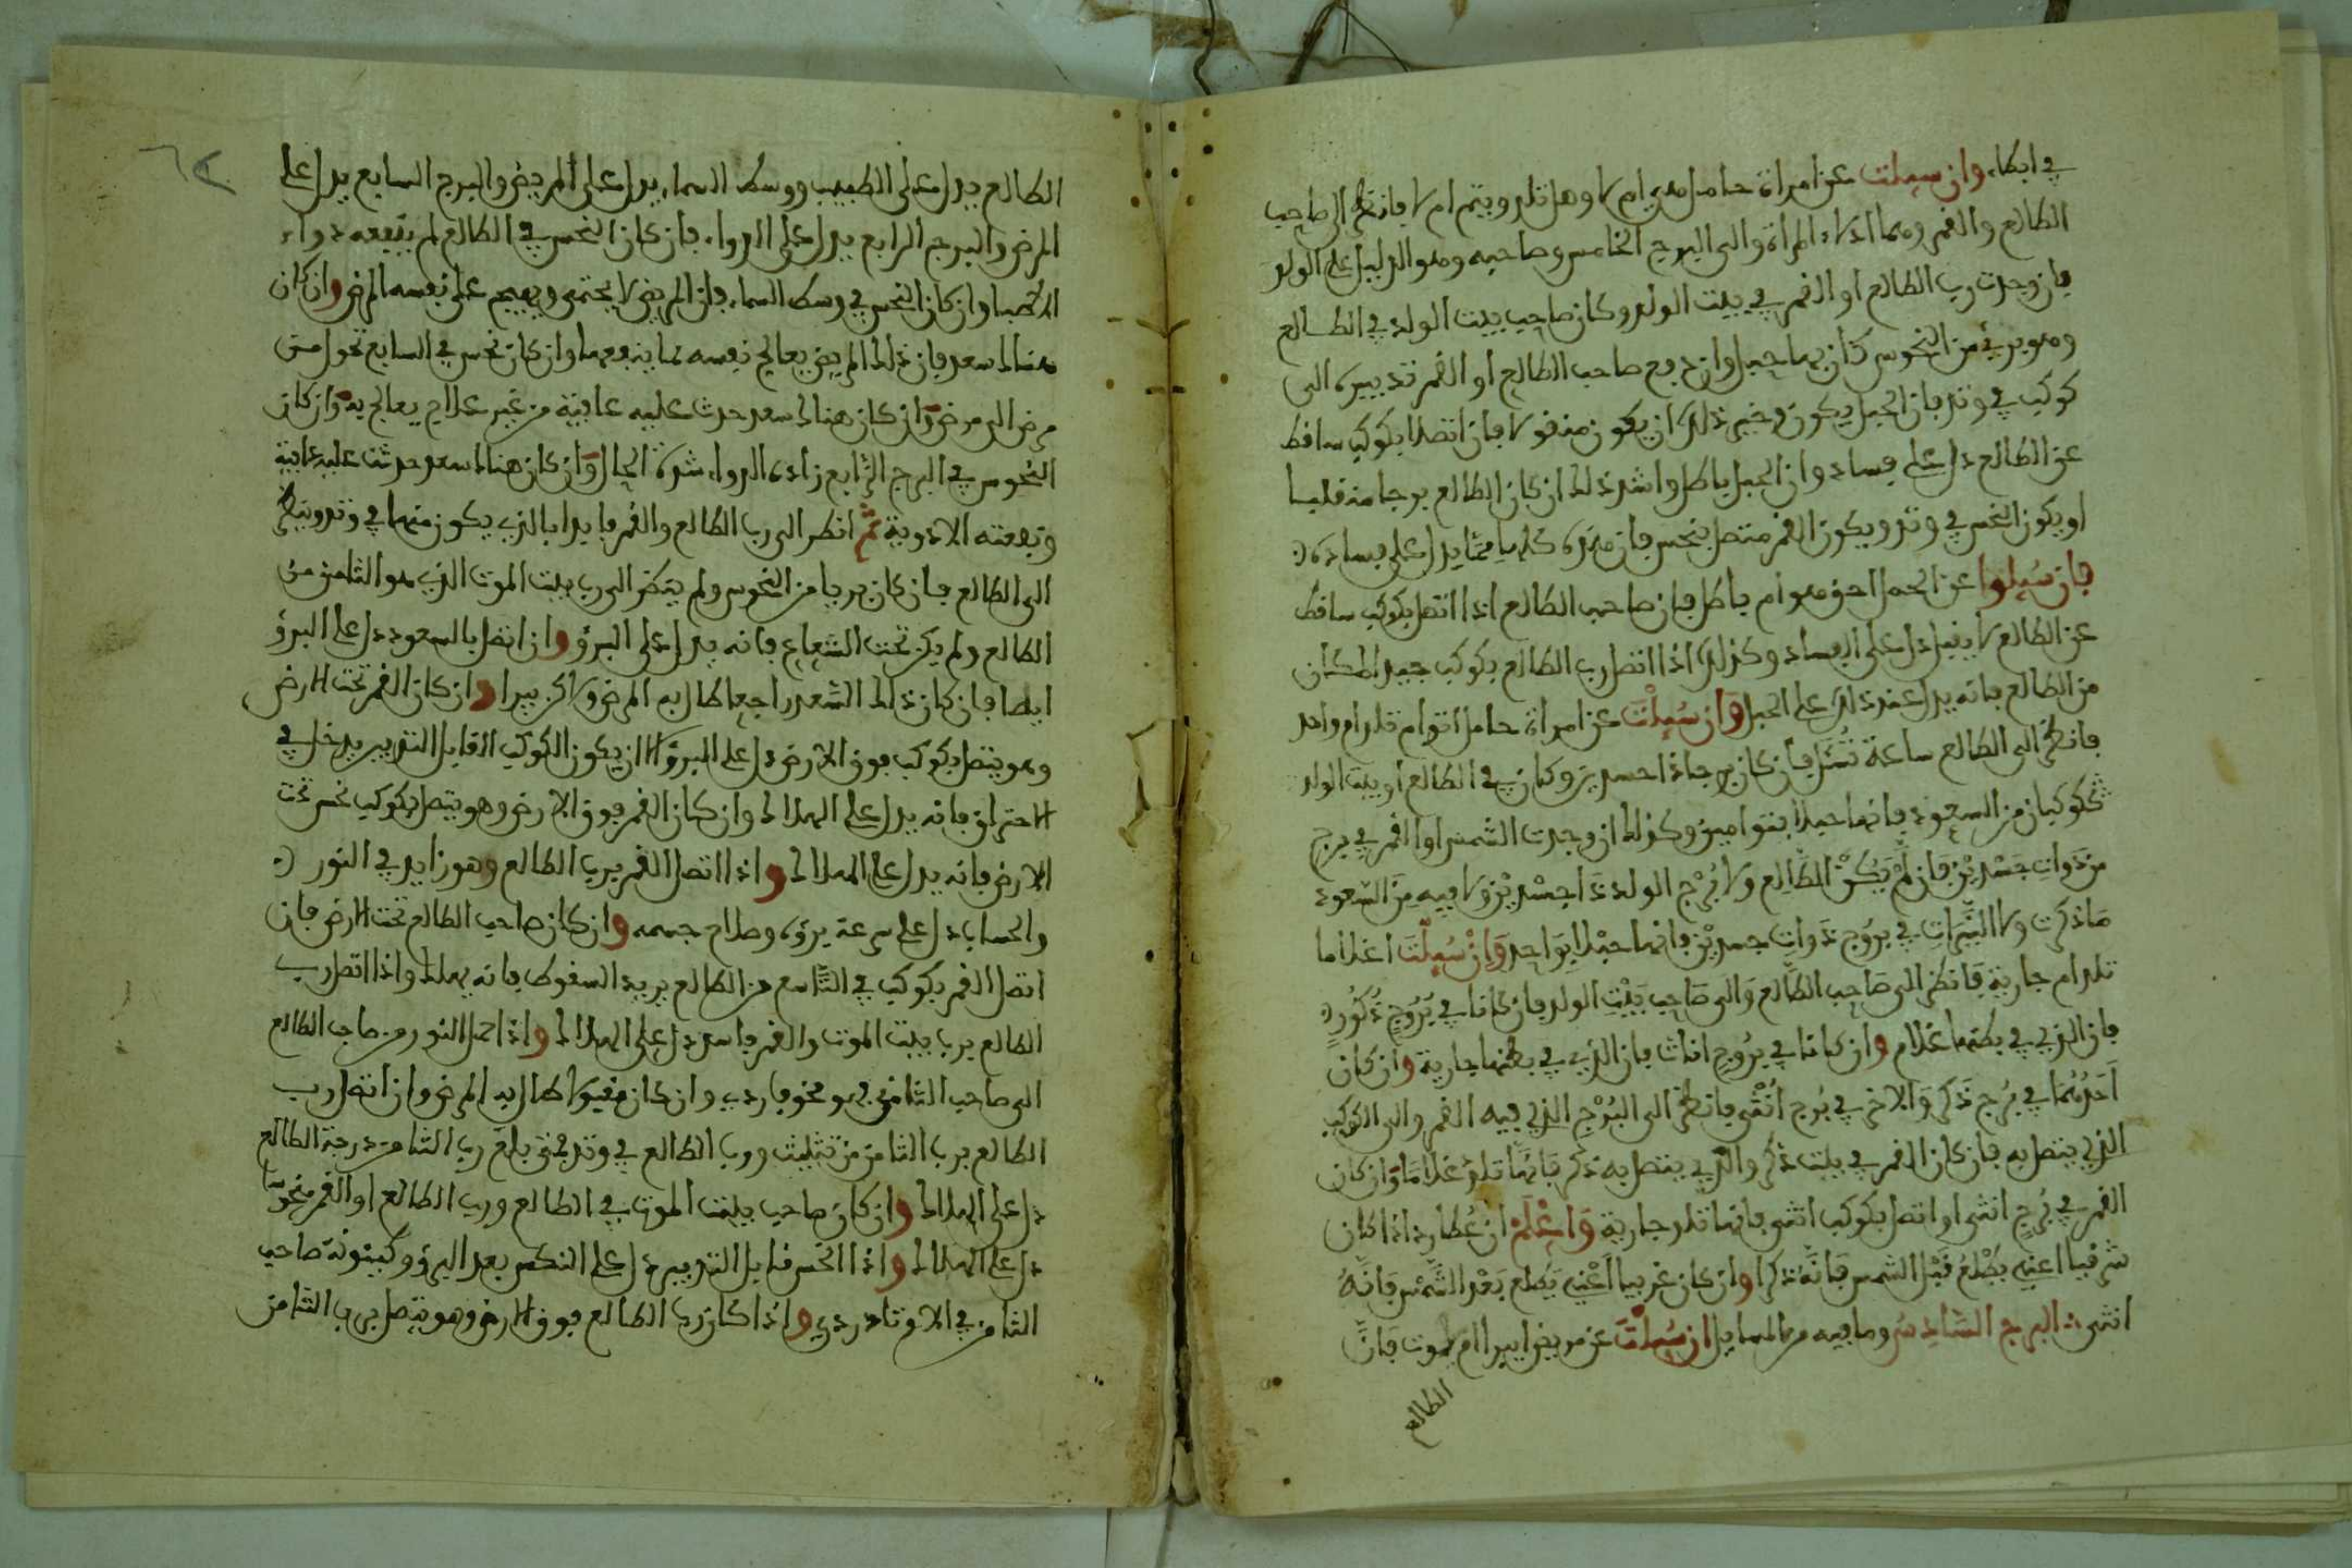 في ابطاء وان سيلت عن امراة حامل هي ام لا وهل تلد ويتم ام لا فانظر الى صاحب
الطالع والقمر وهما ادلاء المراة والى البرج الخامس وصاحبه وهو الدليل على الولد
فان وجدت رب الطالع او القمر في بيت الولد وكان صاحب بيت الولد في الطالع
وهو بريء من النحوس كان بها حبل وان دفع صاحب الطالع او القمر تدبيره الى
كوكب في وتد فان الحبل يكون وخير ذلك ان يكون منقولا فان اتصلا بكوكب ساقط
عن الطالع دل على فساد وان الحبل باطل واشد ذلك ان كان الطالع برجا منقلبا
او يكون النحس في وتد ويكون القمر متصل بنحس فان هذه كلها مما يدل على فساده
فان سيلوا عن الحمل احق هو ام باطل فان صاحب الطالع اذا اتصل بكوكب ساقط
عن الطالع لا يقبل دل على الفساد وكذلك اذا اتصل رب الطالع بكوكب جيد المكان
من الطالع فانه يدل عند ذلك على الحبل وان سيلت عن امراة حامل اتوام تلد ام واحد
فانظر الى الطالع ساعة تسئل فان كان برجا ذا جسدين وكان في الطالع او بيت الولد
كوكبان من السعود فانها حبلا بتوامين وكذلك ان وجدت الشمس او القمر في برج
من ذوات جسدين فان لم يكن الطالع ولا برج الولد ذا جسدين ولا فيه من السعود
ما ذكرت ولا النيرات في بروج ذوات جسدين فانها حبلا بواحد وان سيلت اغلاما
تلد ام جارية فانظر الى صاحب الطالع والى صاحب بيت الولد فان كانا في بروج ذكور
فان الذي في بطنها غلام وان كانا في بروج اناث فان الذي في بطنها جارية وان كان
احدهما في برج ذكر والاخر في برج انثى فانظر الى البرج الذي فيه القمر والى الكوكب
الذي يتصل به فان كان القمر في بيت ذكر والذي يتصل به ذكر فانها تلد غلاما وان كان
القمر في برج انثى او اتصل بكوكب انثى فانها تلد جارية واعلم ان عطارد اذا كان
شرقيا اعني يطلع قبل الشمس فانه ذكرا وان كان غربيا اعني يطلع بعد الشمس فانه
انثى البرج السادس وما فيه من المسايل ان سيلت عن مريض ايبرا ام يموت فان
الطالع
الطالع يدل على الطبيب ووسط السماء يدل على المريض والبرج السابع يدل على
المرض والبرج الرابع يدل على الدواء فان كان النحس في الطالع لم ينفعه دواء
الاطبا وان كان النحس في وسط السماء فان المريض لا يحتمي ويهيج على نفسه المرض وان كان
هناك سعد فان ذلك المريض يعالج نفسه بما ينفعها وان كان نحس في السابع تحول من
مرض الى مرض وان كان هناك سعد حدث عليه عافية من غير علاج يعالج به وان كان
النحوس في البرج الرابع زاده الدواء شدة الحال وان كان هناك سعد حدثت عليه عافية
ونفعته الادوية ثم انظر الى رب الطالع والقمر فابدا بالذي يكون منهما في وتد وينظر
الى الطالع فان كان بريا من النحوس ولم ينظر الى رب بيت الموت الذي هو الثامن من
الطالع ولم يكن تحت الشعاع فانه يدل على البرؤ وان اتصل بالسعود دل على البرؤ
ايضا فان كان ذلك السعد راجعا طال به المرض ولاكن يبرا وان كان القمر تحت الارض
وهو يتصل بكوكب فوق الارض دل على البرؤ الا ان يكون الكوكب القابل التدبير يدخل في
الاحتراق فانه يدل على الهلاك وان كان القمر فوق الارض وهو يتصل بكوكب نحس تحت
الارض فانه يدل على الهلاك واذا اتصل القمر برب الطالع وهو زايد في النور
والحساب دل على سرعة برؤه وصلاح جسمه وان كان صاحب الطالع تحت الارض فان
اتصل القمر بكوكب في التاسع من الطالع يريد السقوط فانه يهلك واذا اتصل رب
الطالع برب بيت الموت والقمر فاسد دل على الهلاك واذا حمل النور من صاحب الطالع
الى صاحب الثامن فهو مخوف اردي وان كان مقبولا طال به المرض وان اتصل رب
الطالع برب الثامن من تثليث ورب الطالع في وتد فمتى بلغ رب الثامن درجة الطالع
دل على الهلاك وان كان صاحب بيت الموت في الطالع ورب الطالع او القمر منحوسا
دل على الهلاك واذا النحس قابل التدبير دل على النكس بعد البرؤ وكينونة صاحب
الثامن في الاوتاد ردي واذا كان رب الطالع فوق الارض وهو يتصل برب الثامن